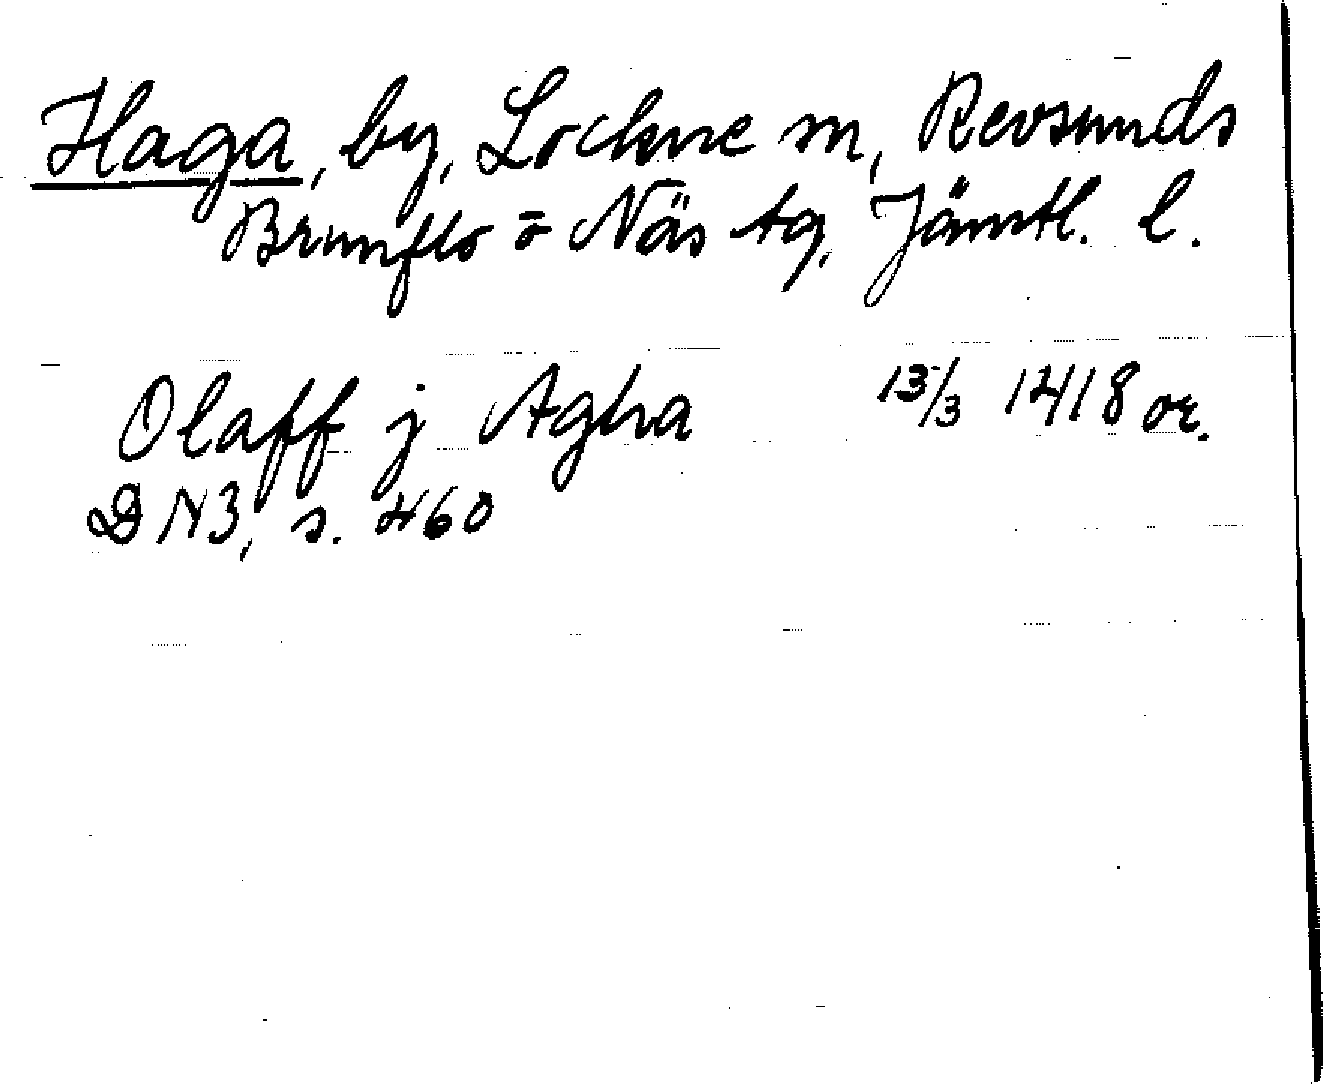 Haga, by, Lockne sn, Revsunds
Brunflo o Näs tg, Jämtl. l.
Olaff j Agha 13/3 1418 or.
DN3, s. 460